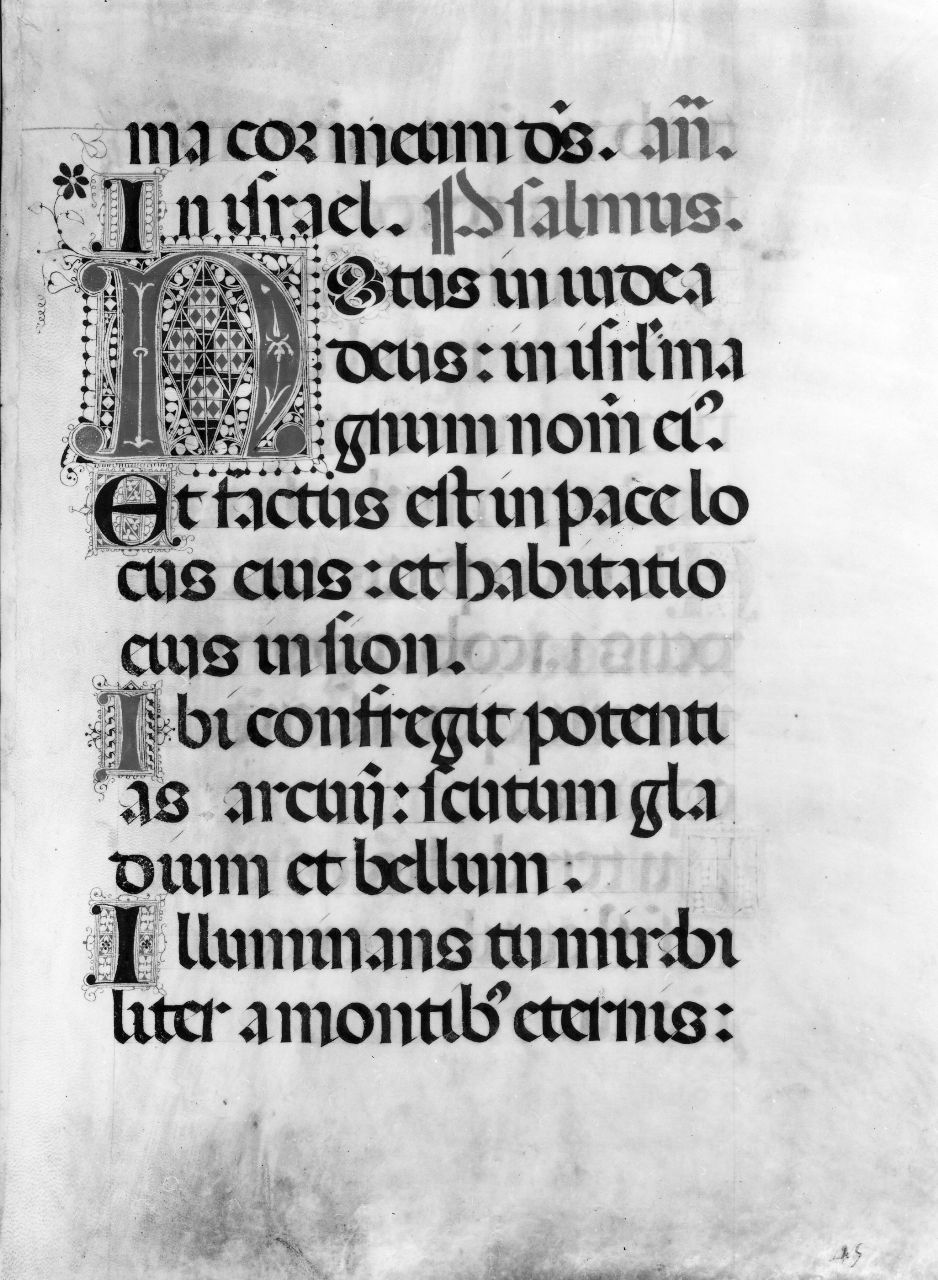 ma cor meum ds̄. an̄.
In israel. Psalmus.
Notus in iudea
deus: in isrl̄ ma
gnum nom̄ eiꝰ.
Et factus est in pace lo
cus eius: et habitatio
eius in sion.
Ibi confregit potenti
as arcuū: scutum gla
dium et bellum:
Illuminans tu mirabi
liter a montibꝰ eternis:
45